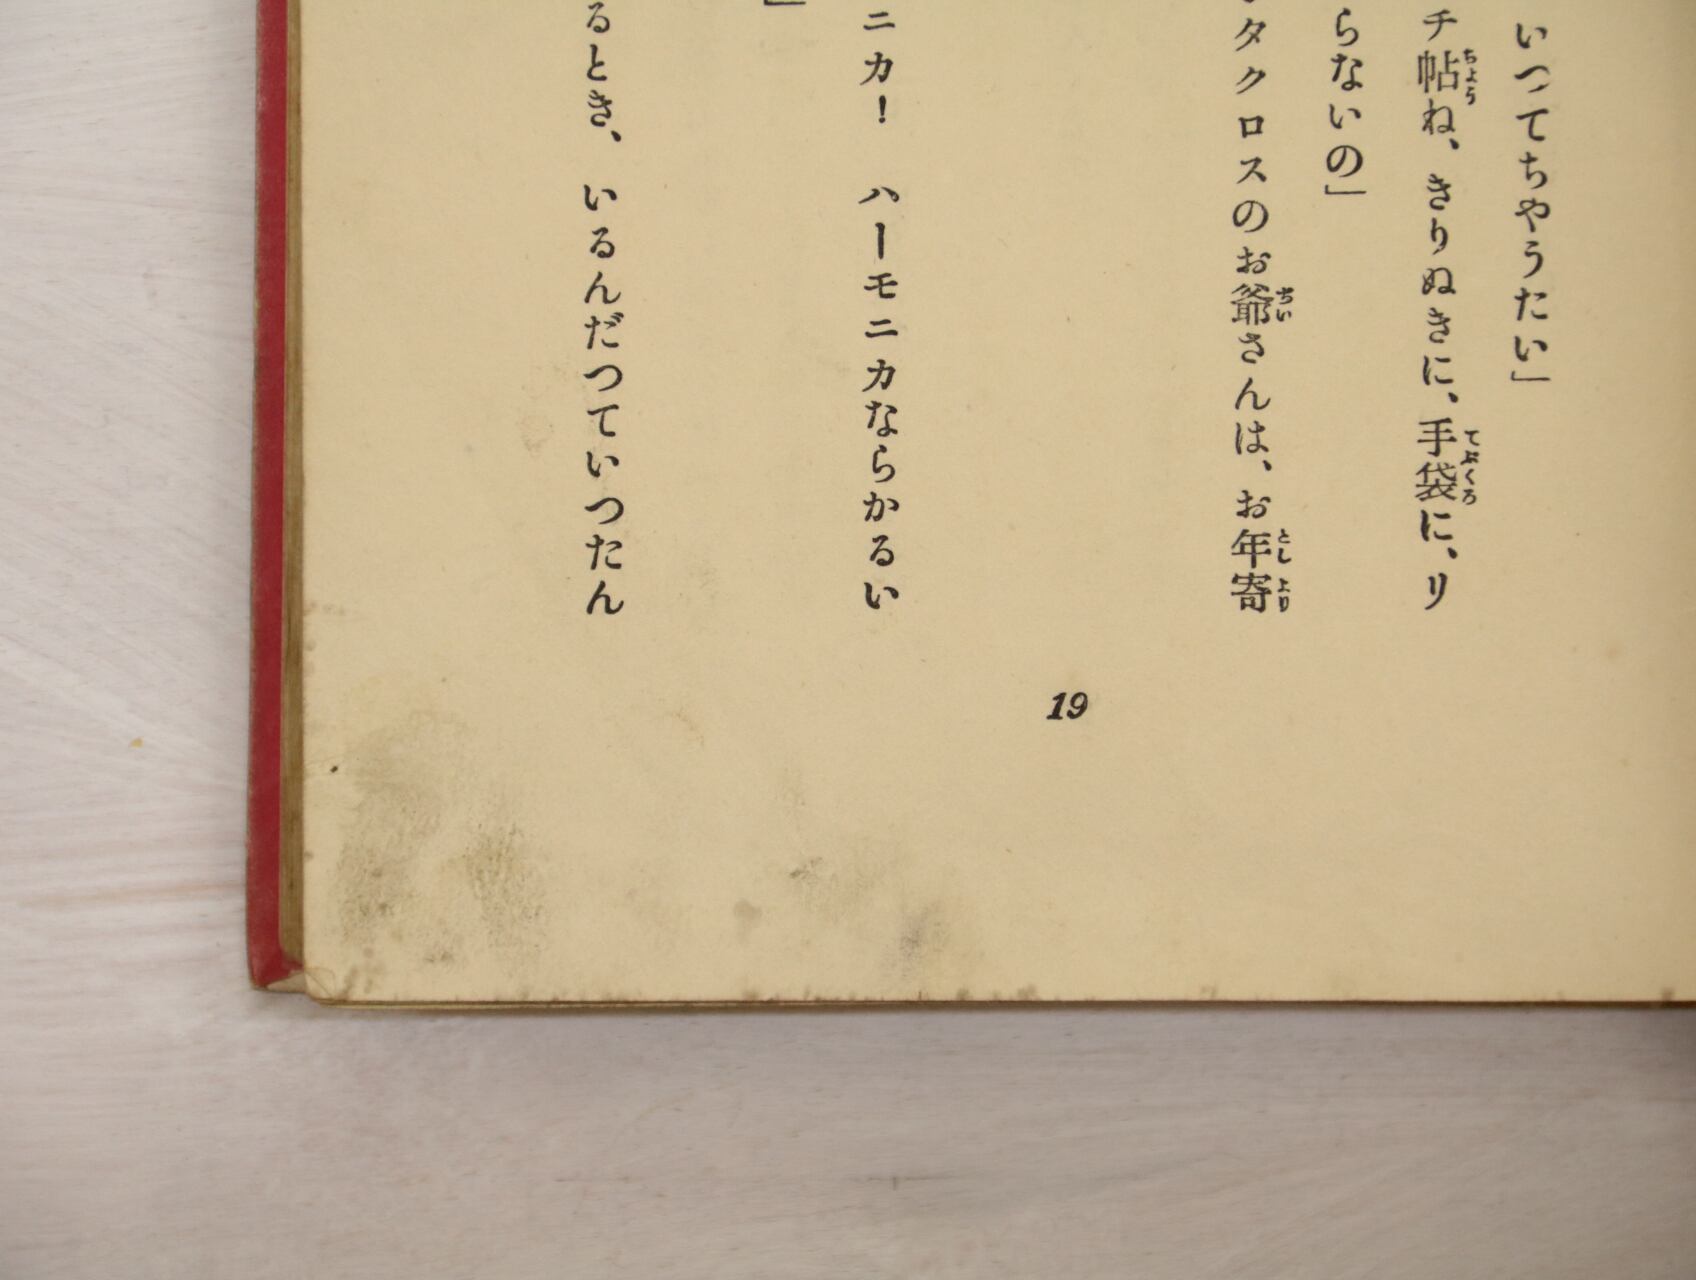 いつてちやうたい」
チ帖ね、きりぬきに、手袋に、リ
らないの」
タクロスのお爺さんは、お年寄
ニカ！　ハーモニカならかるい
」
るとき、いるんだつていつたん
19